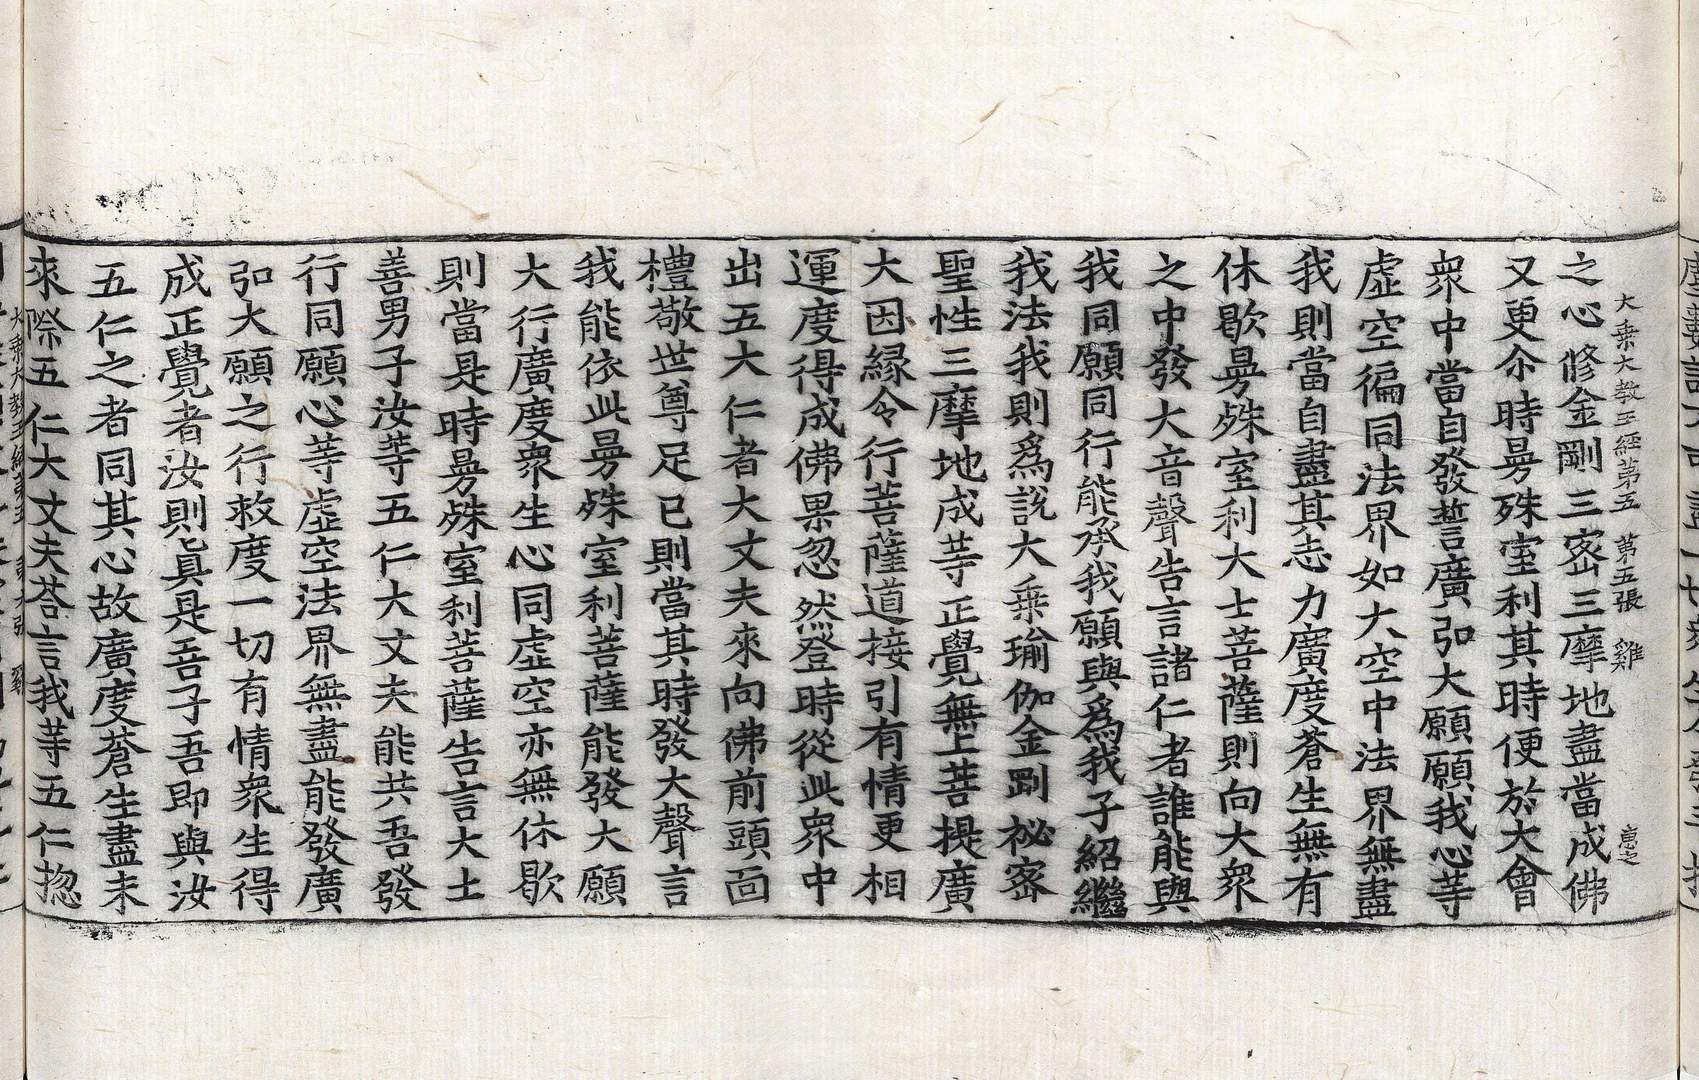 大乗大教王經第五 第五張 雞 惠之
之心修金剛三密三摩地盡當成佛
又更尒時曼殊室利其時便於大會
衆中當自發誓廣弘大願願我心等
虛空徧同法界如大空中法界無盡
我則當自盡其志力廣度蒼生無有
休歇曼殊室利大士菩薩則向大衆
之中發大音聲告言諸仁者誰能與
我同願同行能承我願與爲我子紹繼
我法我則爲說大乗瑜伽金剛祕密
聖性三摩地成等正覺無上菩提廣
大因緣令行菩薩道接引有情更相
運度得成佛果忽然登時從此衆中
出五大仁者大丈夫來向佛前頭面
禮敬世尊足已則當其時發大聲言
我能依此曼殊室利菩薩能發大願
大行廣度衆生心同虛空亦無休歇
則當是時曼殊室利菩薩告言大士
善男子汝等五仁大丈夫能共吾發
行同願心等虛空法界無盡能發廣
弘大願之行救度一切有情衆生得
成正覺者汝則真是吾子吾即與汝
五仁之者同其心故廣度蒼生盡未
來際五仁大丈夫荅言我等五仁揔